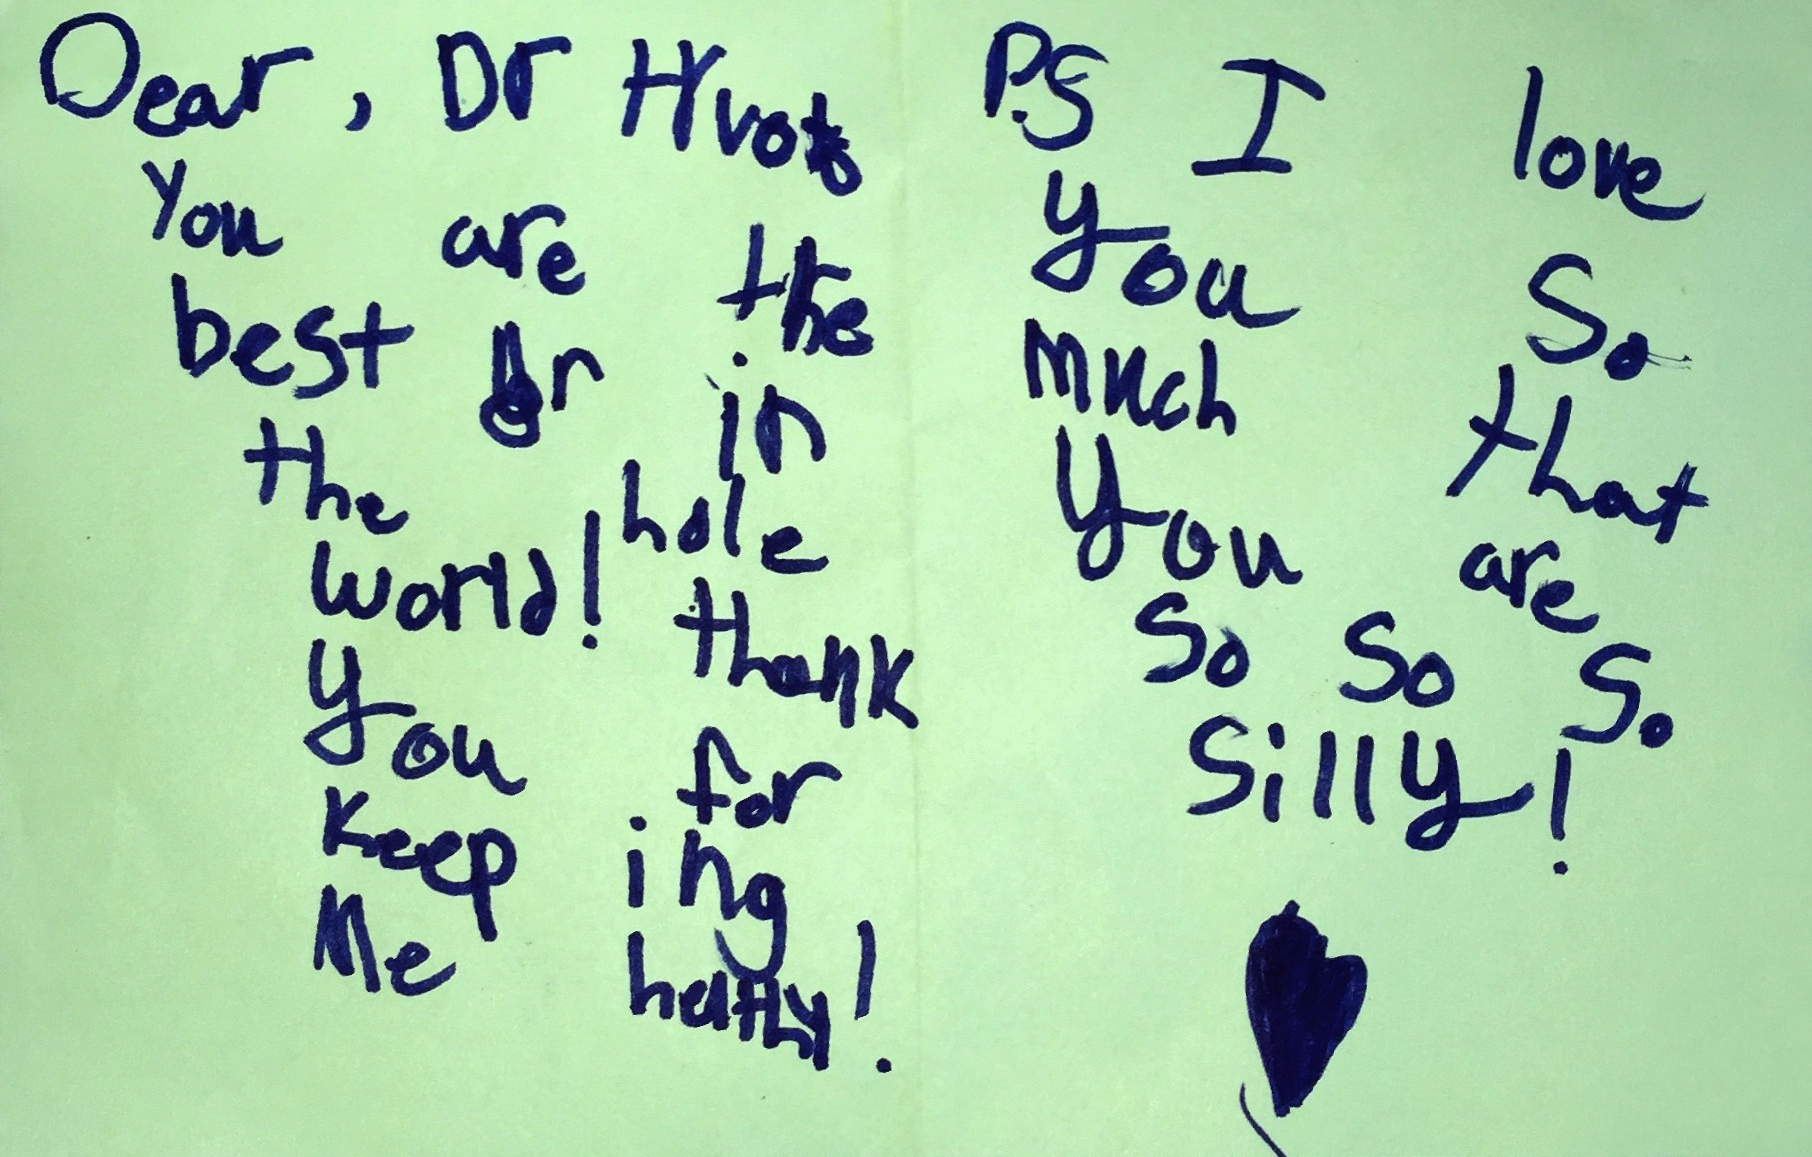 Dear, Dr
You are the
best Dr in
the hole
world! thank
you for
keep ing
me
P.S I love
you so
much that
you are
so so so
silly!